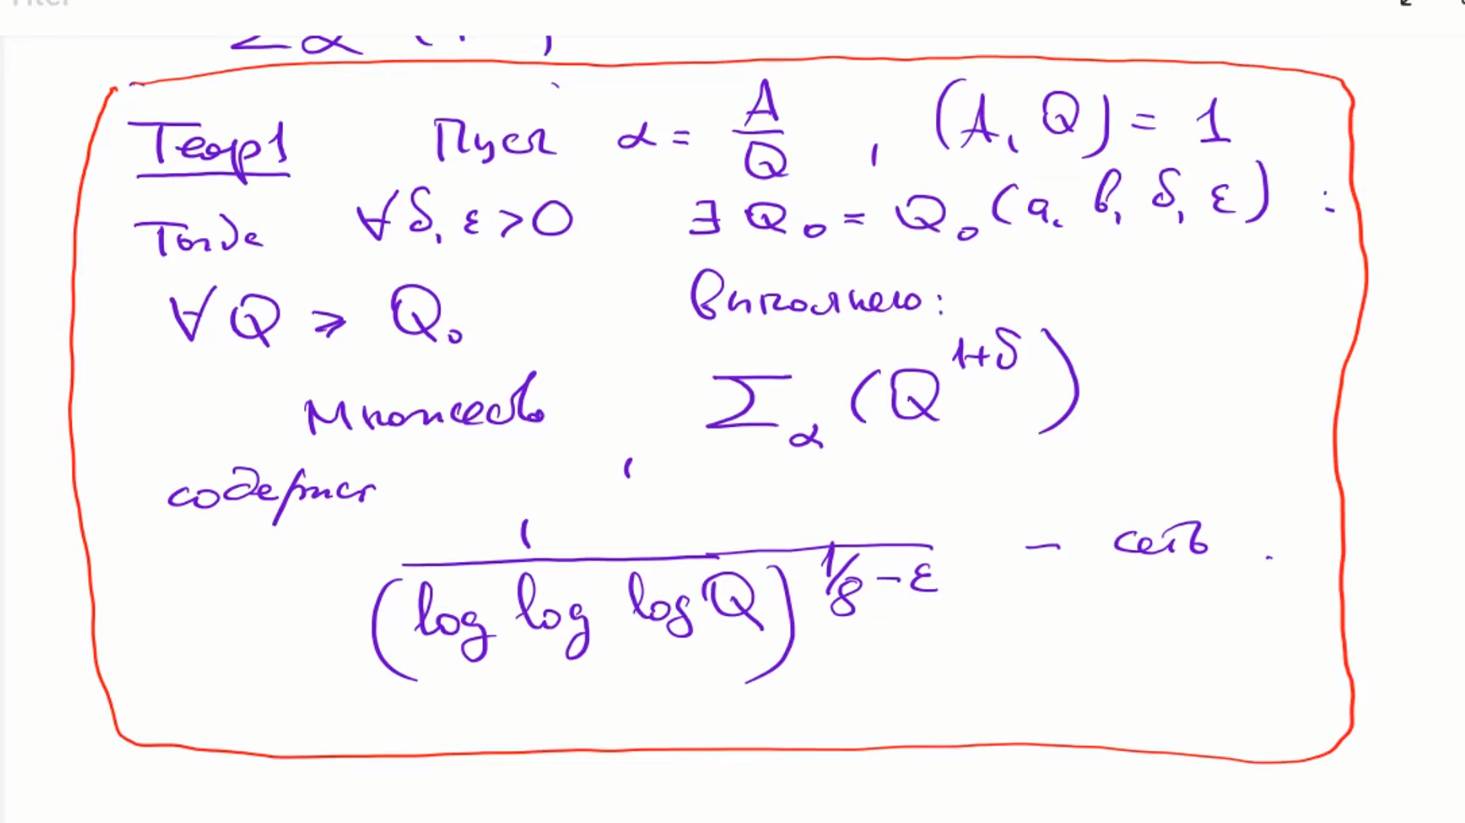 Теор 1 Пусть α = A/Q , (A, Q) = 1
Тогда ∀ δ, ε > 0 ∃ Q₀ = Q₀ (a, b, δ, ε) :
∀ Q ⩾ Q₀ выполнено:
Множество Σ_α (Q^{1+δ})
содержит
1/(log log log Q)^{1/8 - ε} - сеть .